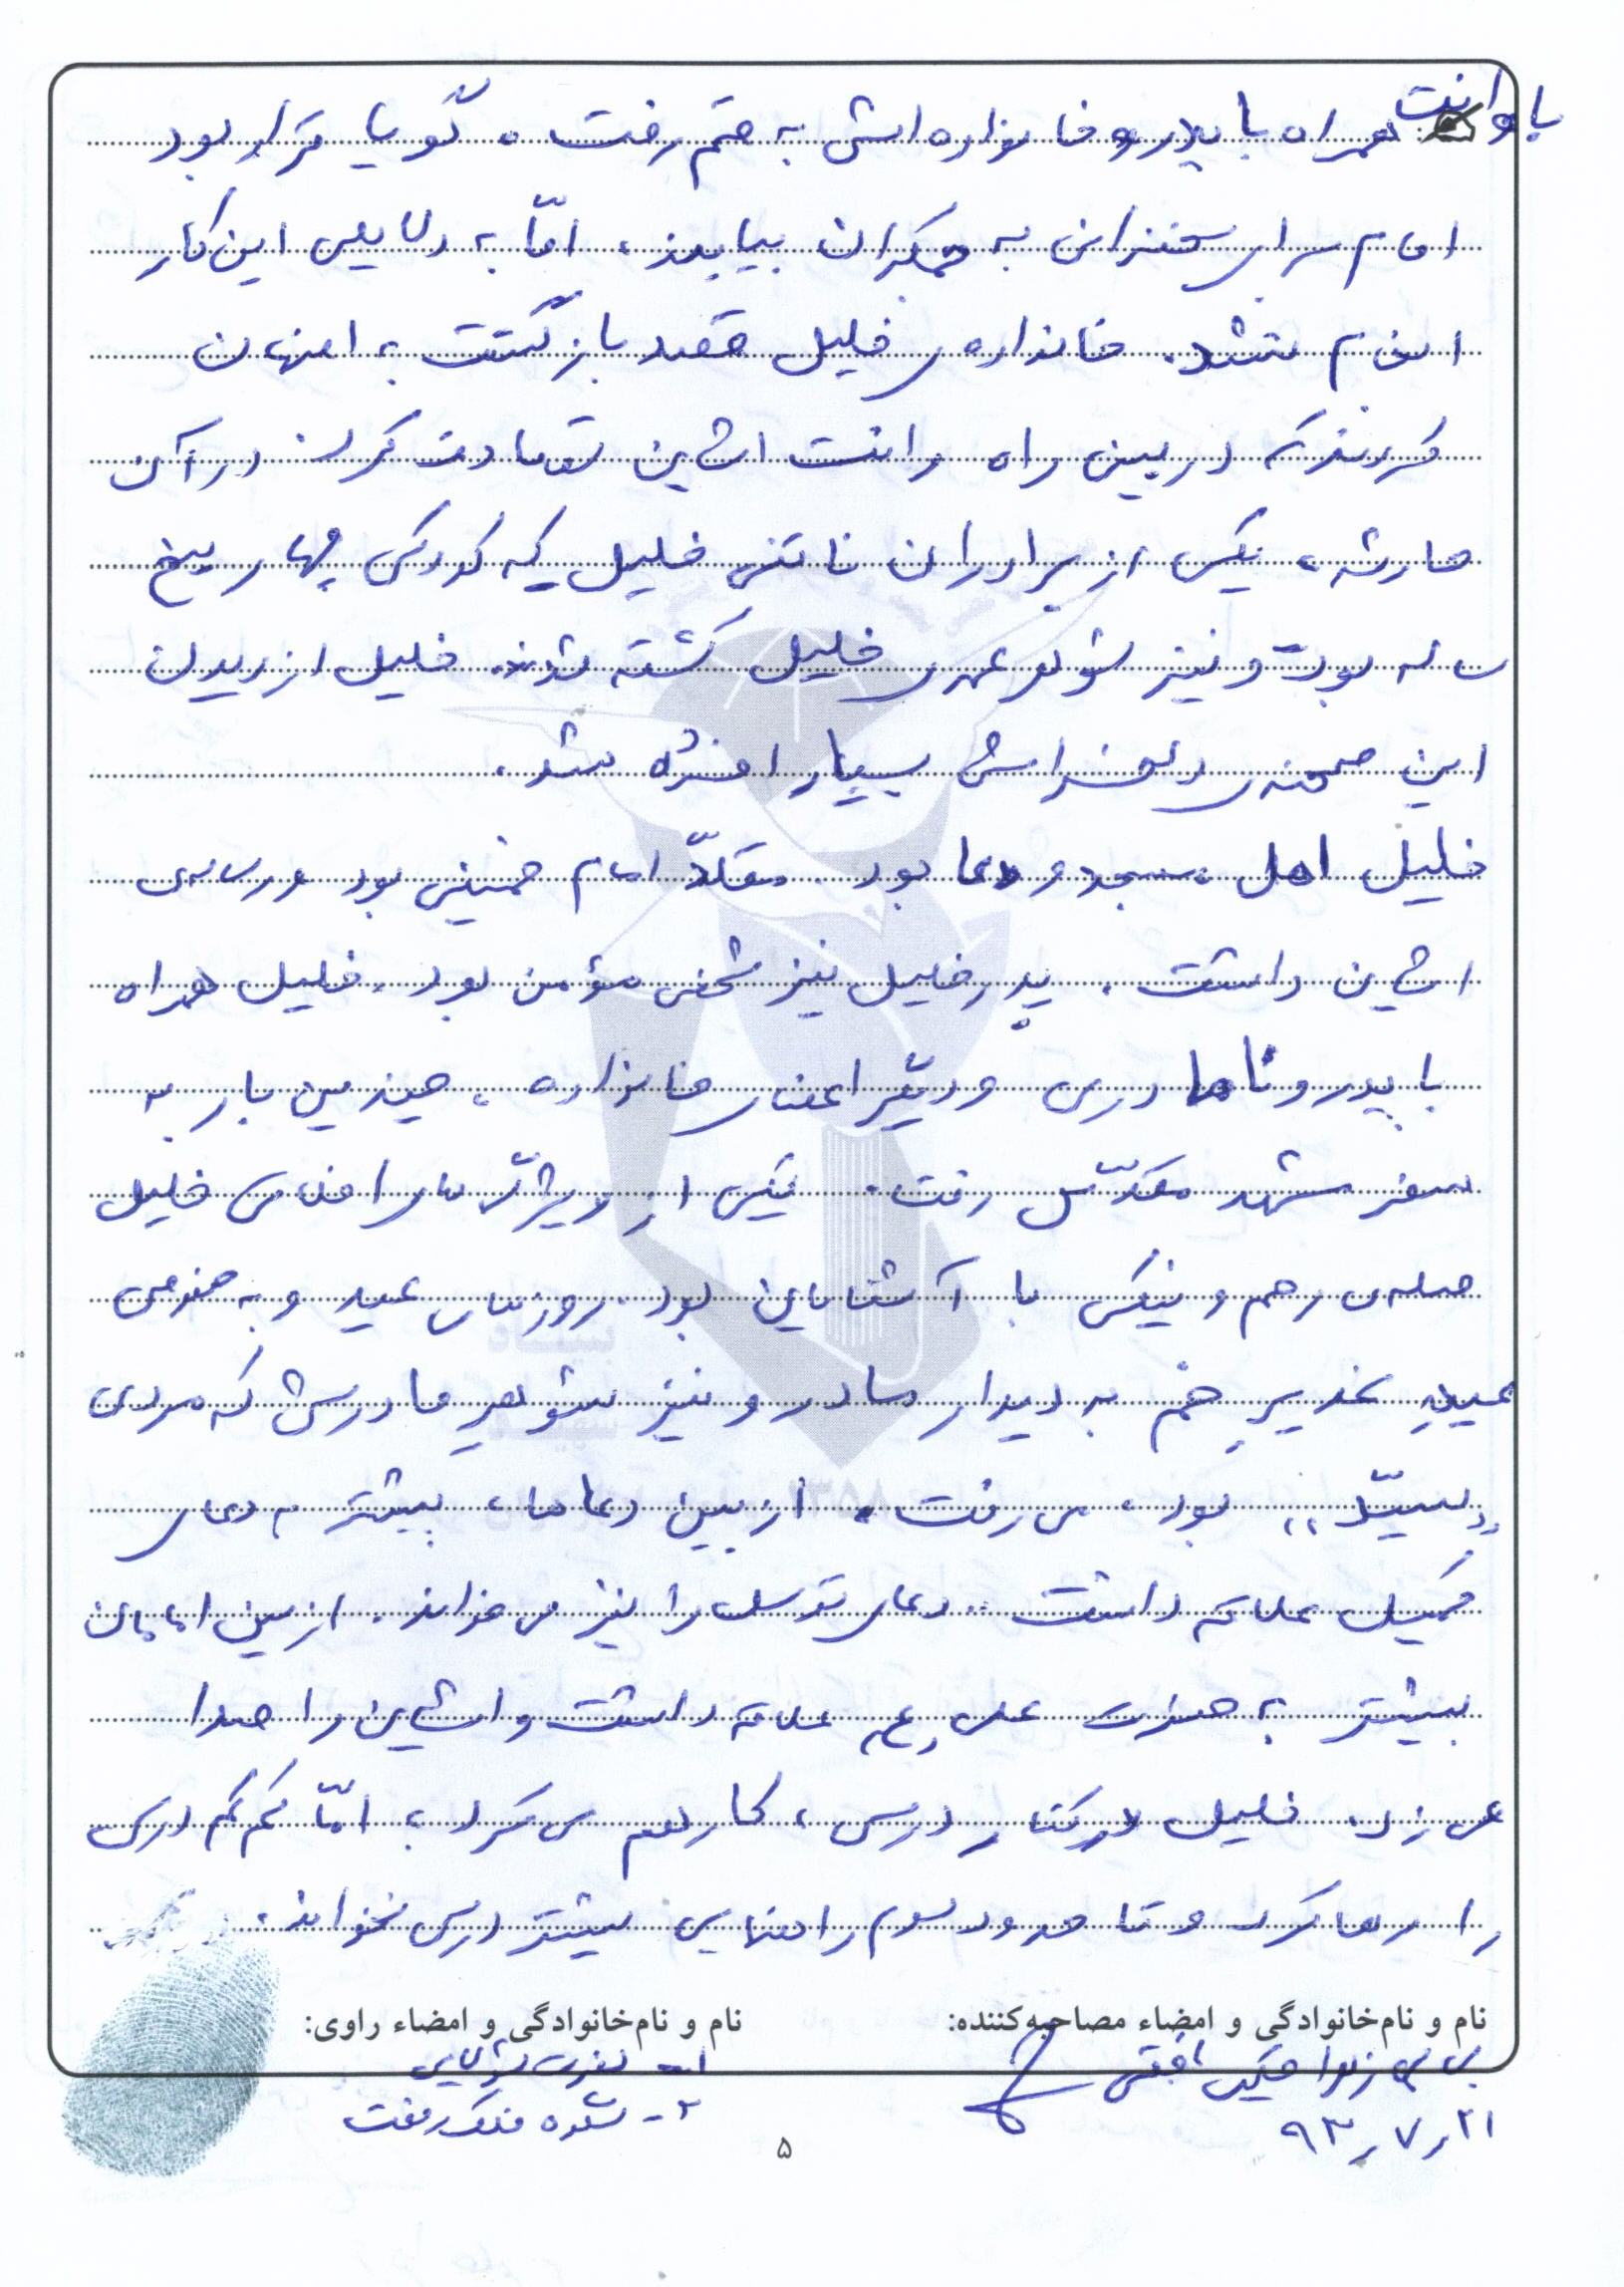 با وانت همراه با پدر و خانواده‌اش به قم رفت. گویا قرار بود
امام برای سخنرانی به جمکران بیایند، امّا به دلایلی این کار
انجام نشد. خانواده‌ی خلیل قصد بازگشت به اصفهان
کردند که در بین راه وانت ایشان تصادف کرد. در آن
حادثه، یکی از برادران ناتنی خلیل که کودکی چهار پنج
ساله بود و نیز شوهر عمه‌ی خلیل کشته شدند. خلیل از دیدن
این صحنه‌ی دلخراش بسیار افسرده شد.
خلیل اهل مسجد و دعا بود. مقلّد امام خمینی بود و رساله‌ی
ایشان داشت. پدر خلیل نیز شخص مؤمن بود. خلیل همراه
با پدر و نامادری و دیگر اعضای خانواده، چندین بار به
سفر مشهد مقدّس رفت. یکی از ویژگی‌های اخلاقی خلیل
صله‌ی رحم و نیکی با آشنایان بود. روزهای عید و به خصوص
عیدِ غدیرِ خم به دیدار مادر و نیز شوهرِ مادرش که مردی
«سیّد» بود، می‌رفت. از بین دعاها، بیشتر به دعای
کمیل علاقه داشت. دعای توسل را نیز می‌خواند. از بین امامان
بیشتر به حضرت علی (ع) علاقه داشت و ایشان را صدا
می‌زد. خلیل در کنار درس، کار هم می‌کرد؛ امّا کم کم درس
را رها کرد و تا حدود سوم راهنمایی بیشتر درس نخواند.
نام و نام‌خانوادگی و امضاء مصاحبه‌کننده: نام و نام‌خانوادگی و امضاء راوی:
بی بی زهرا
۱- نصرت
۲- ملک رفعت
۹۳/۷/۲۱
۵